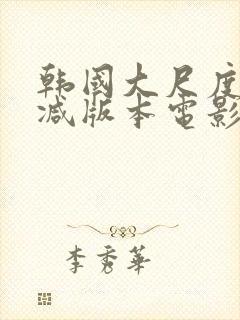 韩国大尺度
减版本电影
李秀华